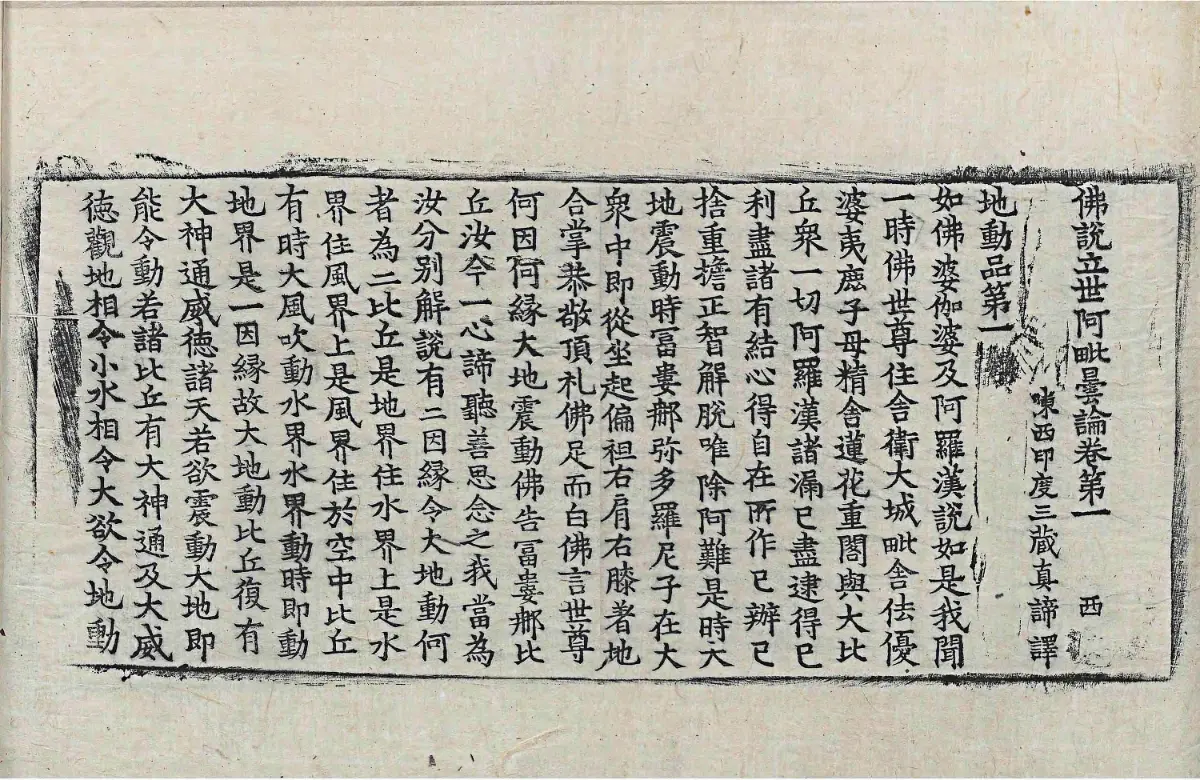 佛說立世阿毗曇論卷第一 西
陳西印度三藏真諦譯
地動品第一
如佛婆伽婆及阿羅漢說如是我聞
一時佛世尊住舍衛大城毗舍佉優
婆夷鹿子母精舍蓮花重閣與大比
丘衆一切阿羅漢諸漏已盡逮得已
利盡諸有結心得自在所作已辦已
捨重擔正智解脫唯除阿難是時大
地震動時冨婁那弥多羅尼子在大
衆中即從坐起偏袒右肩右膝著地
合掌恭敬頂礼佛足而白佛言世尊
何因何緣大地震動佛告冨婁那比
丘汝今一心諦聽善思念之我當為
汝分別解說有二因緣令大地動何
者為二比丘是地界住水界上是水
界住風界上是風界住於空中比丘
有時大風吹動水界水界動時即動
地界是一因緣故大地動比丘復有
大神通威德諸天若欲震動大地即
能令動若諸比丘有大神通及大威
德觀地相令小水相令大欲令地動